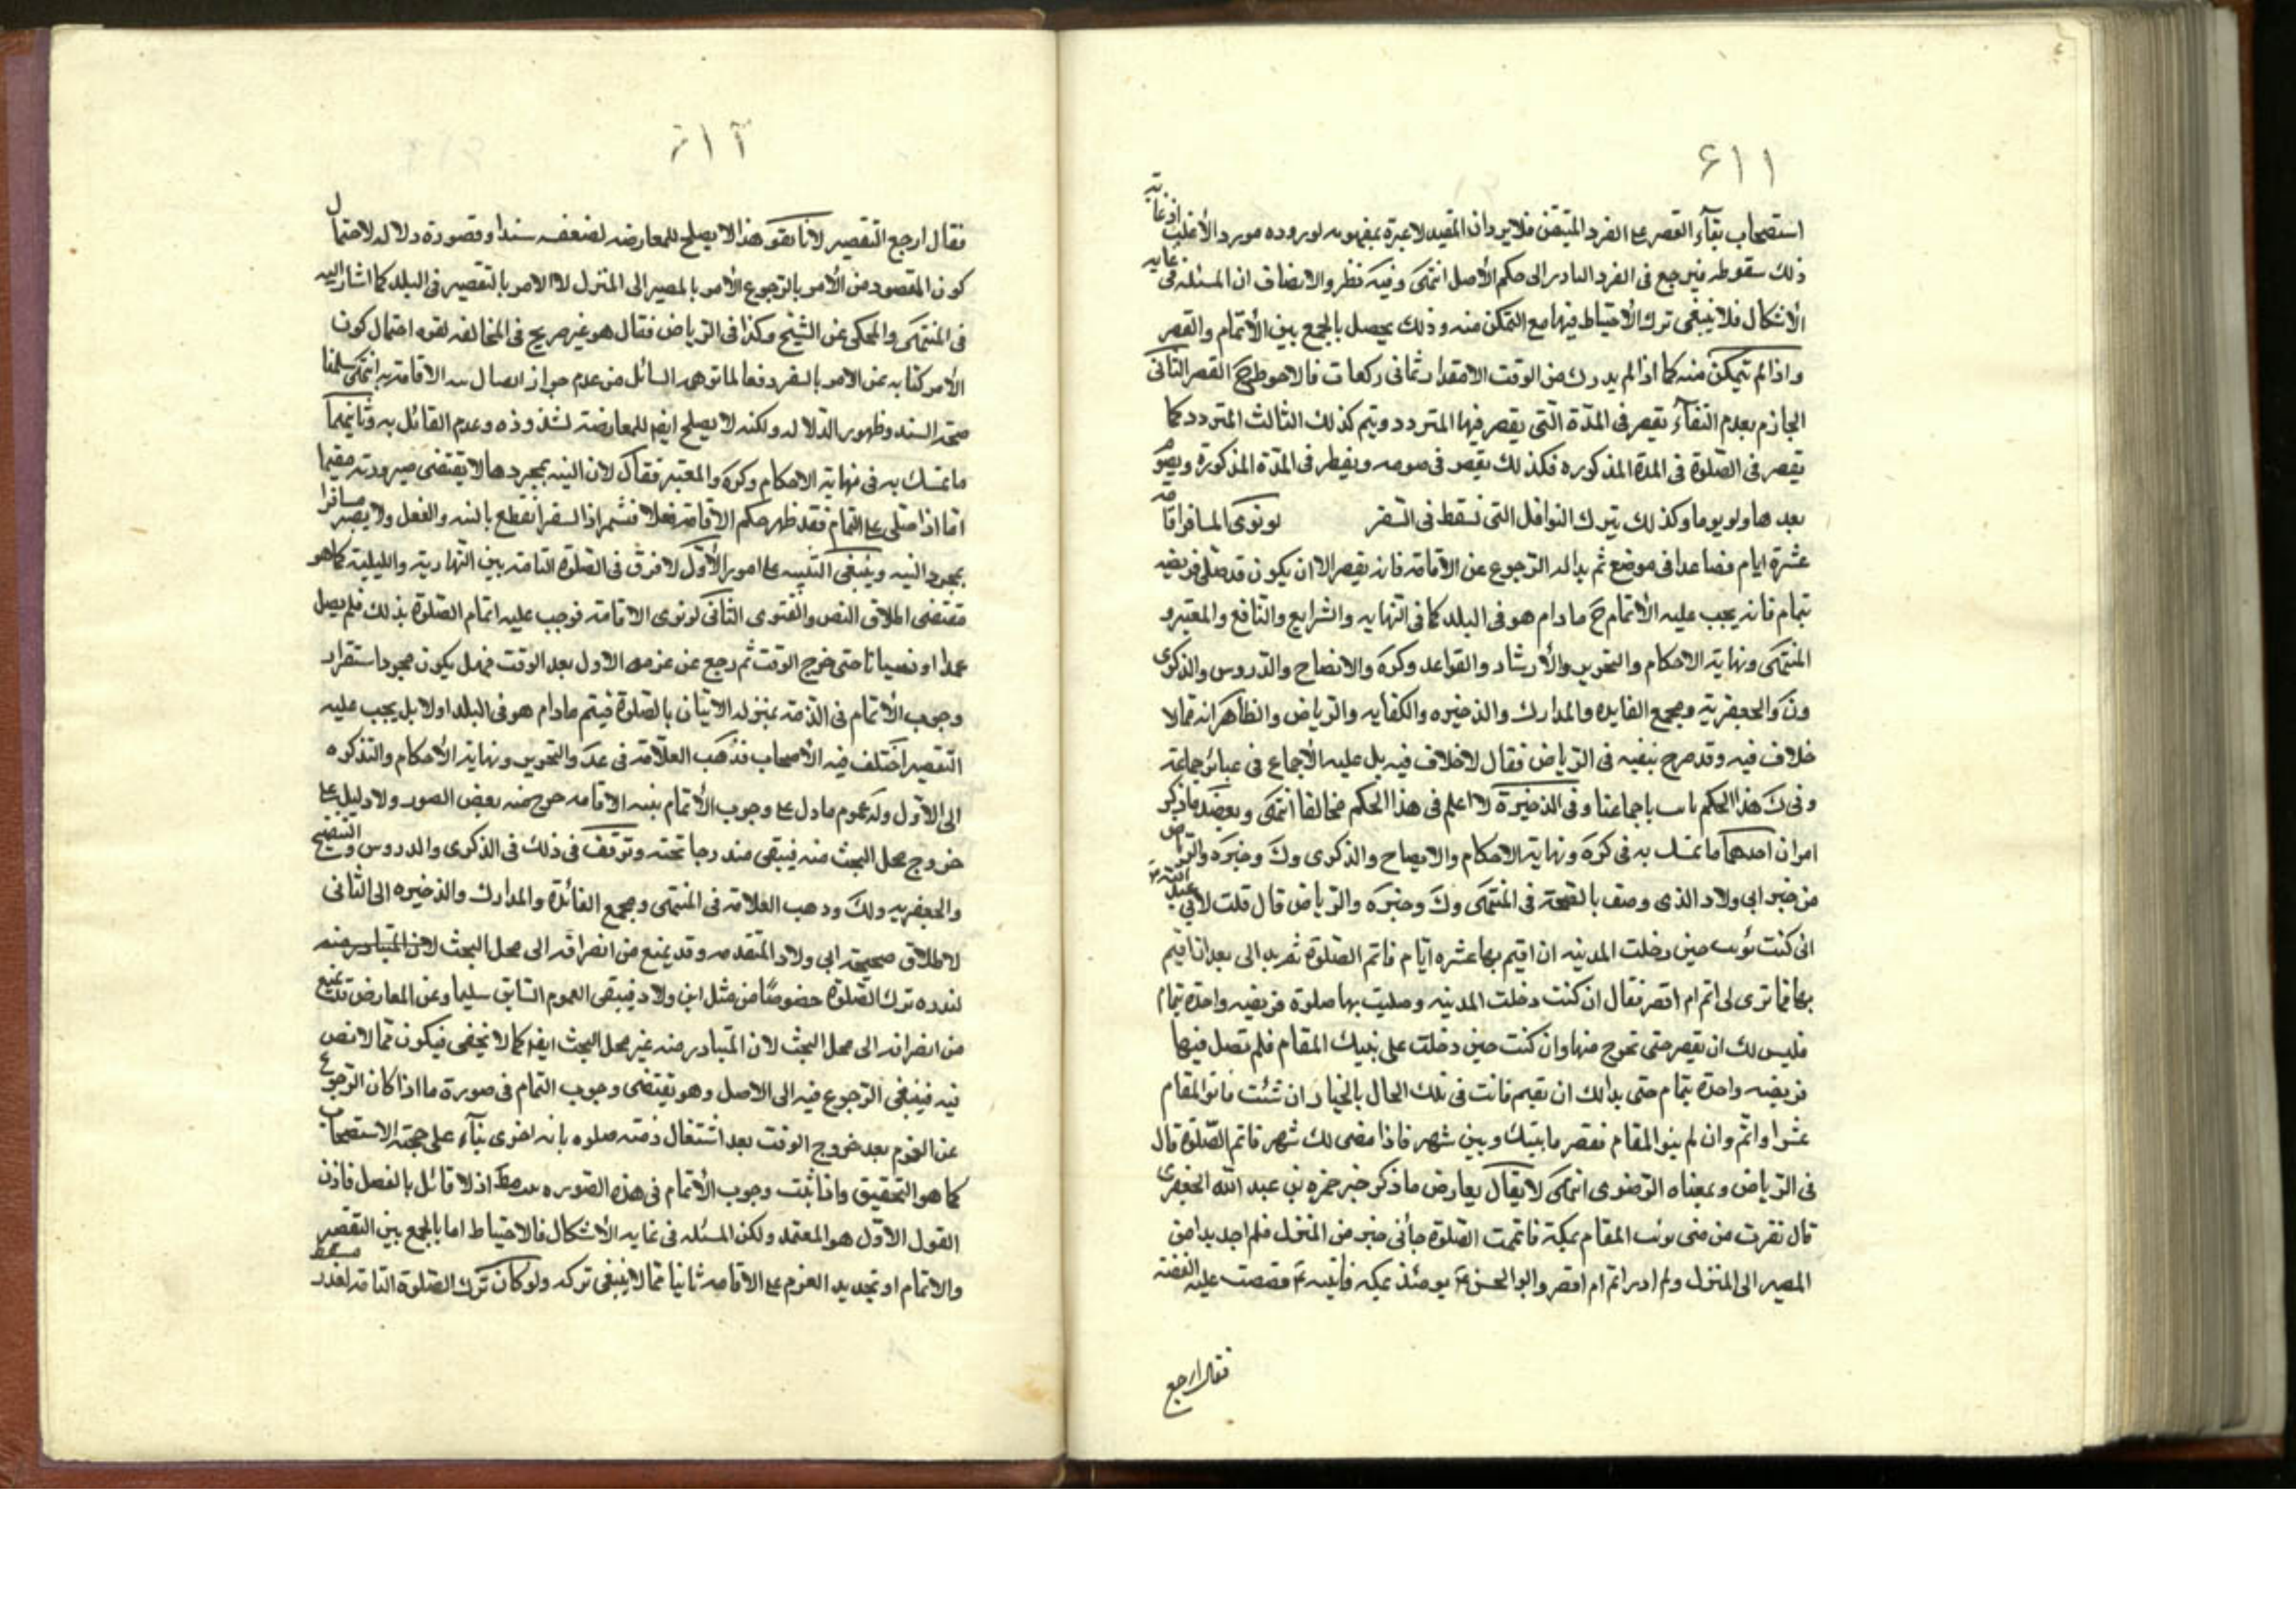 ۶۱۱
استصحاب بقآء القصر على الفرد المتيقن فلا يرد ان المقيد لا عبرة بمفهومه لوروده مورد الأغلب اذ غاية
ذلك سقوطه فيرجع فى الفرد النادر الى حكم الأصل انتهى وفيه نظر والانصاف ان المسئله فى غايه
الأشكال فلا ينبغى ترك الأحتياط فيها مع التمكن منه وذلك يحصل بالجمع بين الأتمام والقصر
واذا لم يتمكن منه كما اذا لم يدرك من الوقت الا مقدار ثمانى ركعات فالاحوط ح القصر الثانى
الجازم بعدم البقآء يقصر فى المدّة التى يقصر فيها المتردد ويتم كذلك الثالث المتردد كما
يقصر فى الصّلوة فى المدة المذكوره فكذلك يقصر فى صومه ويفطر فى المدّة المذكورة ويصوم
بعدها ولو يوما وكذلك يترك النوافل التى تسقط فى السّفر لو نوى المسافر اقامة
عشرة ايام فصاعدا فى موضع ثم بدا له الرّجوع عن الاقامة فانه يقصر الا ان يكون قد صلى فريضه
بتمام فانه يجب عليه الأتمام ح ما دام هو فى البلد كما فى النّهايه والشرايع والنّافع والمعتبر و
المنتهى ونهاية الاحكام والتحرير والأرشاد والقواعد وكره والايضاح والدّروس والذكرى
ون والجعفرية ومجمع الفايده والمدارك والذخيره والكفايه والرّياض والظاهر انه مما لا
خلاف فيه وقد صرح بنفيه فى الرّياض فقال لا خلاف فيه بل عليه الأجماع فى عبائر جماعة
وفى ك هذا الحكم باجماعنا وفى الذخيرة لا اعلم فى هذا الحكم مخالفا انتهى ويعضد ما ذكر
امران احدهما ما تمسك به فى كره ونهاية الاحكام والايضاح والذكرى وك وخيره والرياض
من خبر ابى ولاد الذى وصف بالصّحة فى المنتهى وك وخيره والرّياض قال قلت لأبى عبد الله ع
انى كنت نويت حين دخلت المدينه ان اقيم بها عشره ايّام فاتم الصّلوة ثم بدا لى بعد ان اقيم
بها فما ترى لى اتم ام اقصر فقال ان كنت دخلت المدينه وصليت بها صلوة فريضه واحدة بتمام
فليس لك ان تقصر حتى تخرج منها وان كنت حين دخلت على نيتك المقام فلم تصل فيها
فريضه واحدة بتمام حتى بدا لك ان تقيم فانت فى تلك الحال بالخيار ان شئت فانو المقام
عشرا واتمّ وان لم ينو المقام فقصر ما بينك وبين شهر فاذا مضى لك شهر فاتم الصّلوة قال
فى الرّياض وبمعناه الرّضوى انتهى لا يقال يعارض ما ذكر خبر حمزه بن عبد الله الجعفرى
قال نفرت من منى نويت المقام بمكة فاتممت الصّلوة جائنى خبر من المنزل فلم اجد بدا من
المصير الى المنزل ولم ادر اتم ام اقصر وابو الحسن ع يومئذ بمكه فاتيته فقصصت عليه القصّة
فقال ارجع
۶۱۲
فقال ارجع التقصير لانا نقول هذا لا يصلح للمعارضه لضعفه سندا وقصوره دلاله لاحتمال
كون المقصود من الأمر بالرّجوع الأمر بالمصير الى المنزل لا الامر بالتقصير فى البلد كما اشار اليه
فى المنتهى والمحكى عن الشيخ وكذا فى الرّياض فقال هو غير صريح فى المخالفه لقوه احتمال كون
الأمر كنايه عن الامر بالسفر دفعا لما توهمه السائل من عدم جواز ابطال نية الاقامة به انتهى سلمنا
صحة السند وظهور الدّلاله ولكنه لا يصلح ايضا للمعارضة لشذوذه وعدم القائل به وثانيهما
ما تمسك به فى نهاية الاحكام وكره والمعتبر فقال لان النيه بمجردها لا يقتضى صيرورته مقيما
امّا اذا صلى على التمام فقد ظهر حكم الأقامة فعلا انقطع بالنيه والفعل ولا يصير مسافرا
بمجرد النيه وينبغى التنبيه على امور الأوّل لا فرق فى الصّلوة التامّه بين النّهارية والليلية كما هو
مقتضى اطلاق النص والفتوى الثّانى لو نوى الاقامة فوجب عليه اتمام الصّلوة بذلك فلم يصل
عمدا او نسيانا حتى خرج الوقت ثم رجع عن عزمه الاول بعد الوقت فهل يكون مجرد استقرار
وجوب الأتمام فى الذّمة بمنزله الاتيان بالصّلوة فيتم ما دام هو فى البلد اولا بل يجب عليه
التقصير اختلف فيه الأصحاب فذهب العلّامة فى عد والتحرير ونهاية الأحكام والتذكره
الى الأوّل وله عموم ما دل على وجوب الأتمام بنيه الاقامه خرج منه بعض الصور ولا دليل على
خروج محل البحث منه فيبقى مندرجا تحته وتوقف فى ذلك فى الذكرى والدروس
والجعفريه وك وذهب العلامة فى المنتهى ومجمع الفائدة والمدارك والذخيره الى الثانى
لاطلاق صحيحة ابى ولاد المتقدمه وقد يمنع من انصرافه الى محل البحث لان المتبادر منه
لندره ترك الصّلوة خصوصًا من مثل ابى ولاد فيبقى العموم السّابق سليما وعن المعارض
من انصرافه الى محل البحث لان المتبادر منه غير محل البحث ايضا كما لا يخفى فيكون ممّا لا نص
فيه فينبغى الرّجوع فيه الى الاصل وهو يقتضى وجوب التمام فى صورة ما اذا كان الرّجوع
عن العزم بعد خروج الوقت بعد اشتغال ذمته بآء على حجّية الاستصحاب
كما هو التحقيق واذا ثبت وجوب الأتمام فى هذه الصّوره اذ لا قائل بالفصل فاذن
القول الأوّل هو المعتمد ولكن المسئله فى غايه الأشكال فالاحتياط اما بالجمع بين التقصير
والاتمام او تجديد العزم على الاقامه ثانيا ممّا لا ينبغى تركه ولو كان ترك الصّلوة التامّة لعذر مسقط